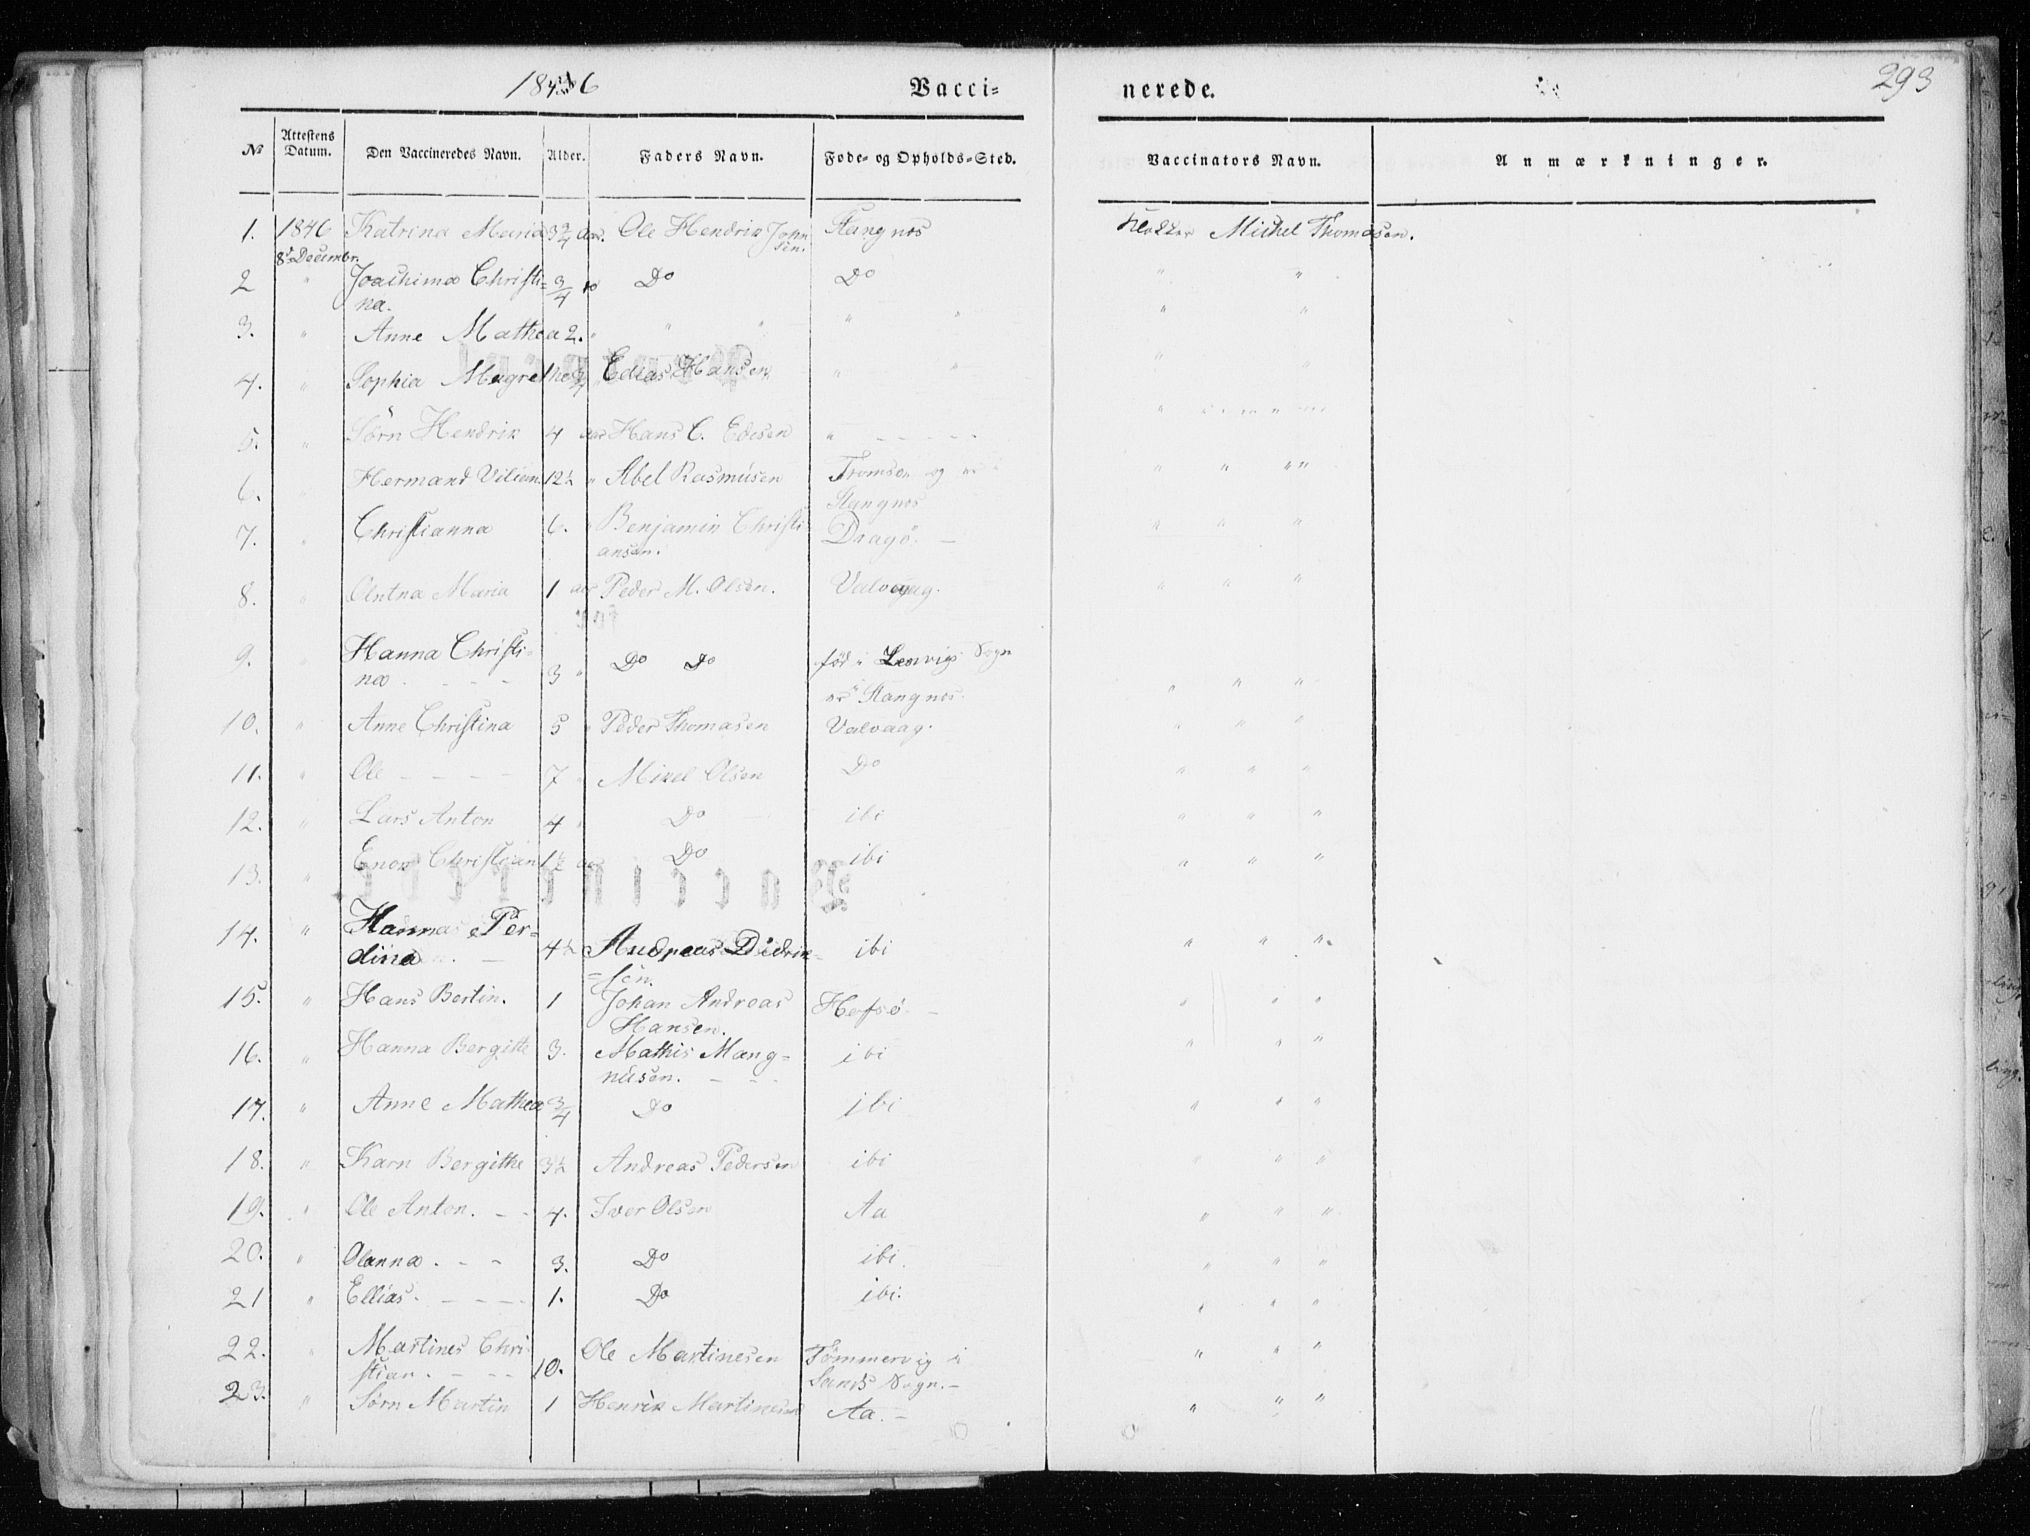 1846 Vacci= nerede. 293
No Attestens Datum. Den Vaccineredes Navn. Alder. Faders Navn. Føde- og Opholds-Sted. Vaccinators Navn. Anmærkninger.
1. 1846 Katrina Maria 3 3/4 aar. Ole Hendrik John Stangnes Klokker Michel Thomasen.
8de Decembr. sen.
2 " Joachima Christi= 3/4 Do Do " "
na.
3. " Anne Mathea 2. " " " " " " "
4. " Sophia Magrethe Edias Hansen " " "
5. " Sørn Hendrik 4 aar Hans C. Edisen " - - - - - "
6. " Hermand Viliam 12½ " Abel Rasmusen Tromsø og " " " "
Stangnes
7. " Christianna 6. " Benjamin Christi Dragö. - " " "
ansen.
8. " Maria 1 aar Peder M. Olsen. Valvaag. " " "
9. " Hanna Christi= 3 " Do Do fød i Lenvigs Sogn
na. - - - Stangnes. " " "
10. " Anne Christina 5 " Peder Thomasen Valvaag. " " "
11. " Ole - - - - 7 " Mikel Olsen Do " " "
12. " Lars Anton 4 " Do ibi " " "
13. " Enok Christian 1½ aar Do ibi " " "
14. " Hanna Per= 4½ Andreas Didrik= ibi " " "
dina =sen.
15. " Hans Bertin. 1 Johan Andreas Hofsö - " " "
Hansen.
16. " Hanna Bergitte 3. Mathis Mang= ibi " " "
nusen. - - -
17. " Anne Mathea 3/4 Do ibi " " "
18. " Karn Bergithe 3½ Andreas Pedersen ibi " " "
19. " Ole Anton. - - 4. Iver Olsen Aa " " "
20. " Olanna. - - 3. Do ibi. " " "
21 " Ellias. - - - - 1. Do ibi. " " "
22. " Martines Chri 10. Ole Martinesen Tömmervig i " " "
stian. - - - Sands Sogn. -
23. " Sørn Martin 1 Henrik Martinesen Aa. - " " "